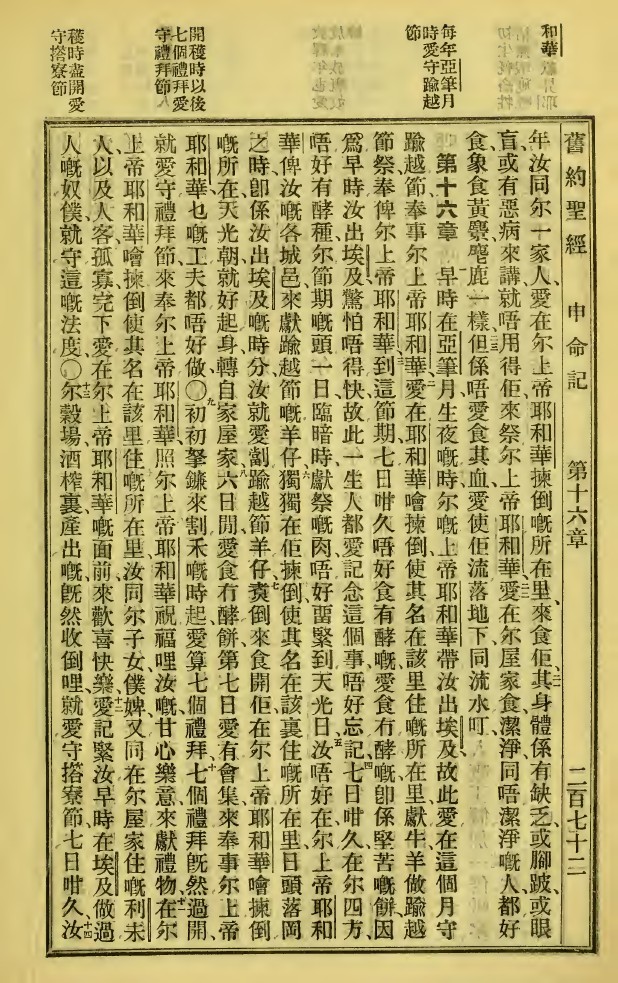 和華
每年亞筆月
時愛守踰越
節
開穫時以後
七個禮拜愛
守禮拜節
穫時盡開愛
守搭寮節
舊約聖經 申命記 第十六章 二百七十二
年汝同尔一家人、愛在尔上帝耶和華揀倒嘅所在里、來食佢、其身體係有缺乏、或脚跛、或眼
盲、或有惡病來講、就唔用得佢來祭尔上帝耶和華、愛在尔屋家食、潔淨同唔潔淨嘅人、都好
食、象食黃麖麀鹿一樣、但係唔愛食其血、愛使佢流落地下、同流水叮、
第十六章 早時在亞筆月、生夜嘅時、尔嘅上帝耶和華帶汝出埃及、故此愛在這個月守
踰越節、奉事尔上帝耶和華、愛在耶和華噲揀倒、使其名在該里住嘅所在里、獻牛羊做踰越
節祭、奉俾尔上帝耶和華、到這節期、七日咁久、唔好食有酵嘅、愛食冇酵嘅、卽係堅苦嘅餅、因
爲早時汝出埃及、驚怕唔得快、故此一生人都愛記念這個事、唔好忘記、七日咁久、在尔四方、
唔好有酵種、尔節期嘅頭一日、臨暗時、獻祭嘅肉、唔好畱緊到天光日、汝唔好在尔上帝耶和
華俾汝嘅各城邑、來獻踰越節嘅羊仔、獨獨在佢揀倒、使其名在該裏住嘅所在里、日頭落岡
之時、卽係汝出埃及嘅時分、汝就愛劏踰越節羊仔、㷛倒來食開佢、在尔上帝耶和華噲揀倒
嘅所在、天光朝就好起身轉自家屋家、六日間、愛食冇酵餅、第七日愛有會集、來奉事尔上帝
耶和華、乜嘅工夫都唔好做〇初初拏鐮來割禾嘅時起、愛算七個禮拜、七個禮拜旣然過開、
就愛守禮拜節、來奉尔上帝耶和華、照尔上帝耶和華祝福哩汝嘅、甘心樂意來獻禮物、在尔
上帝耶和華噲揀倒使其名在該里住嘅所在里、汝同尔子女僕婢、又同在尔屋家住嘅利未
人、以及人客孤寡、完下愛在尔上帝耶和華嘅面前來歡喜快樂、愛記緊汝早時在埃及做過
人嘅奴僕、就守這嘅法度、〇尔穀場酒榨裏產出嘅、旣然收倒哩、就愛守搭寮節、七日咁久、汝